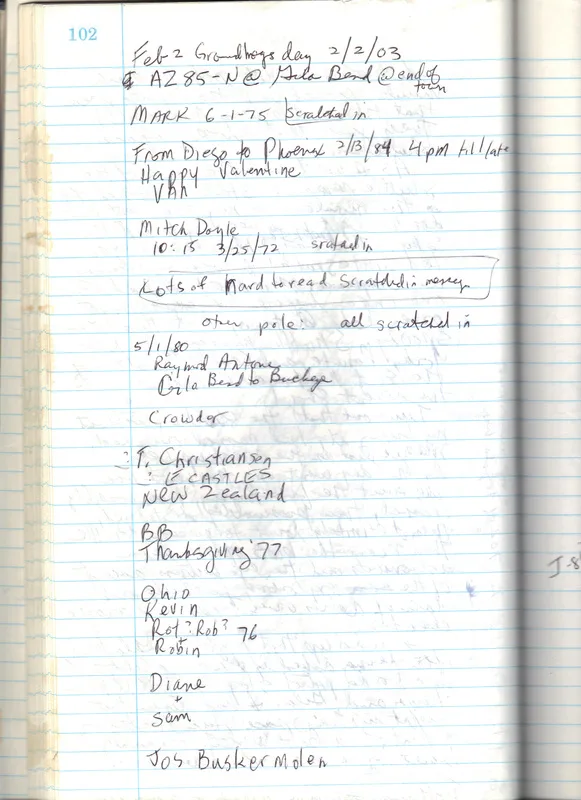 102
Feb 2 Groundhogs day 2/2/03
AZ85-N @ Gila Bend @ end of
town
MARK 6-1-75 scratched in
From Diego to Phoenix 2/13/84 4pm till late
Happy Valentine
VAN
Mitch Doyle
10:15 3/25/72 scratced in
Lots of hard to read scratched in messages
other pole: all scratched in
5/1/80
Raymod Antone
Gila Bend to Buckeye
Crowder
T. Christiansen
E CASTLES
NEW Zealand
BB
Thanksgiving '77
Ohio
Kevin
Rot? Rob? 76
+
Robin
Diane
+
Sam
Jos Buskermolen